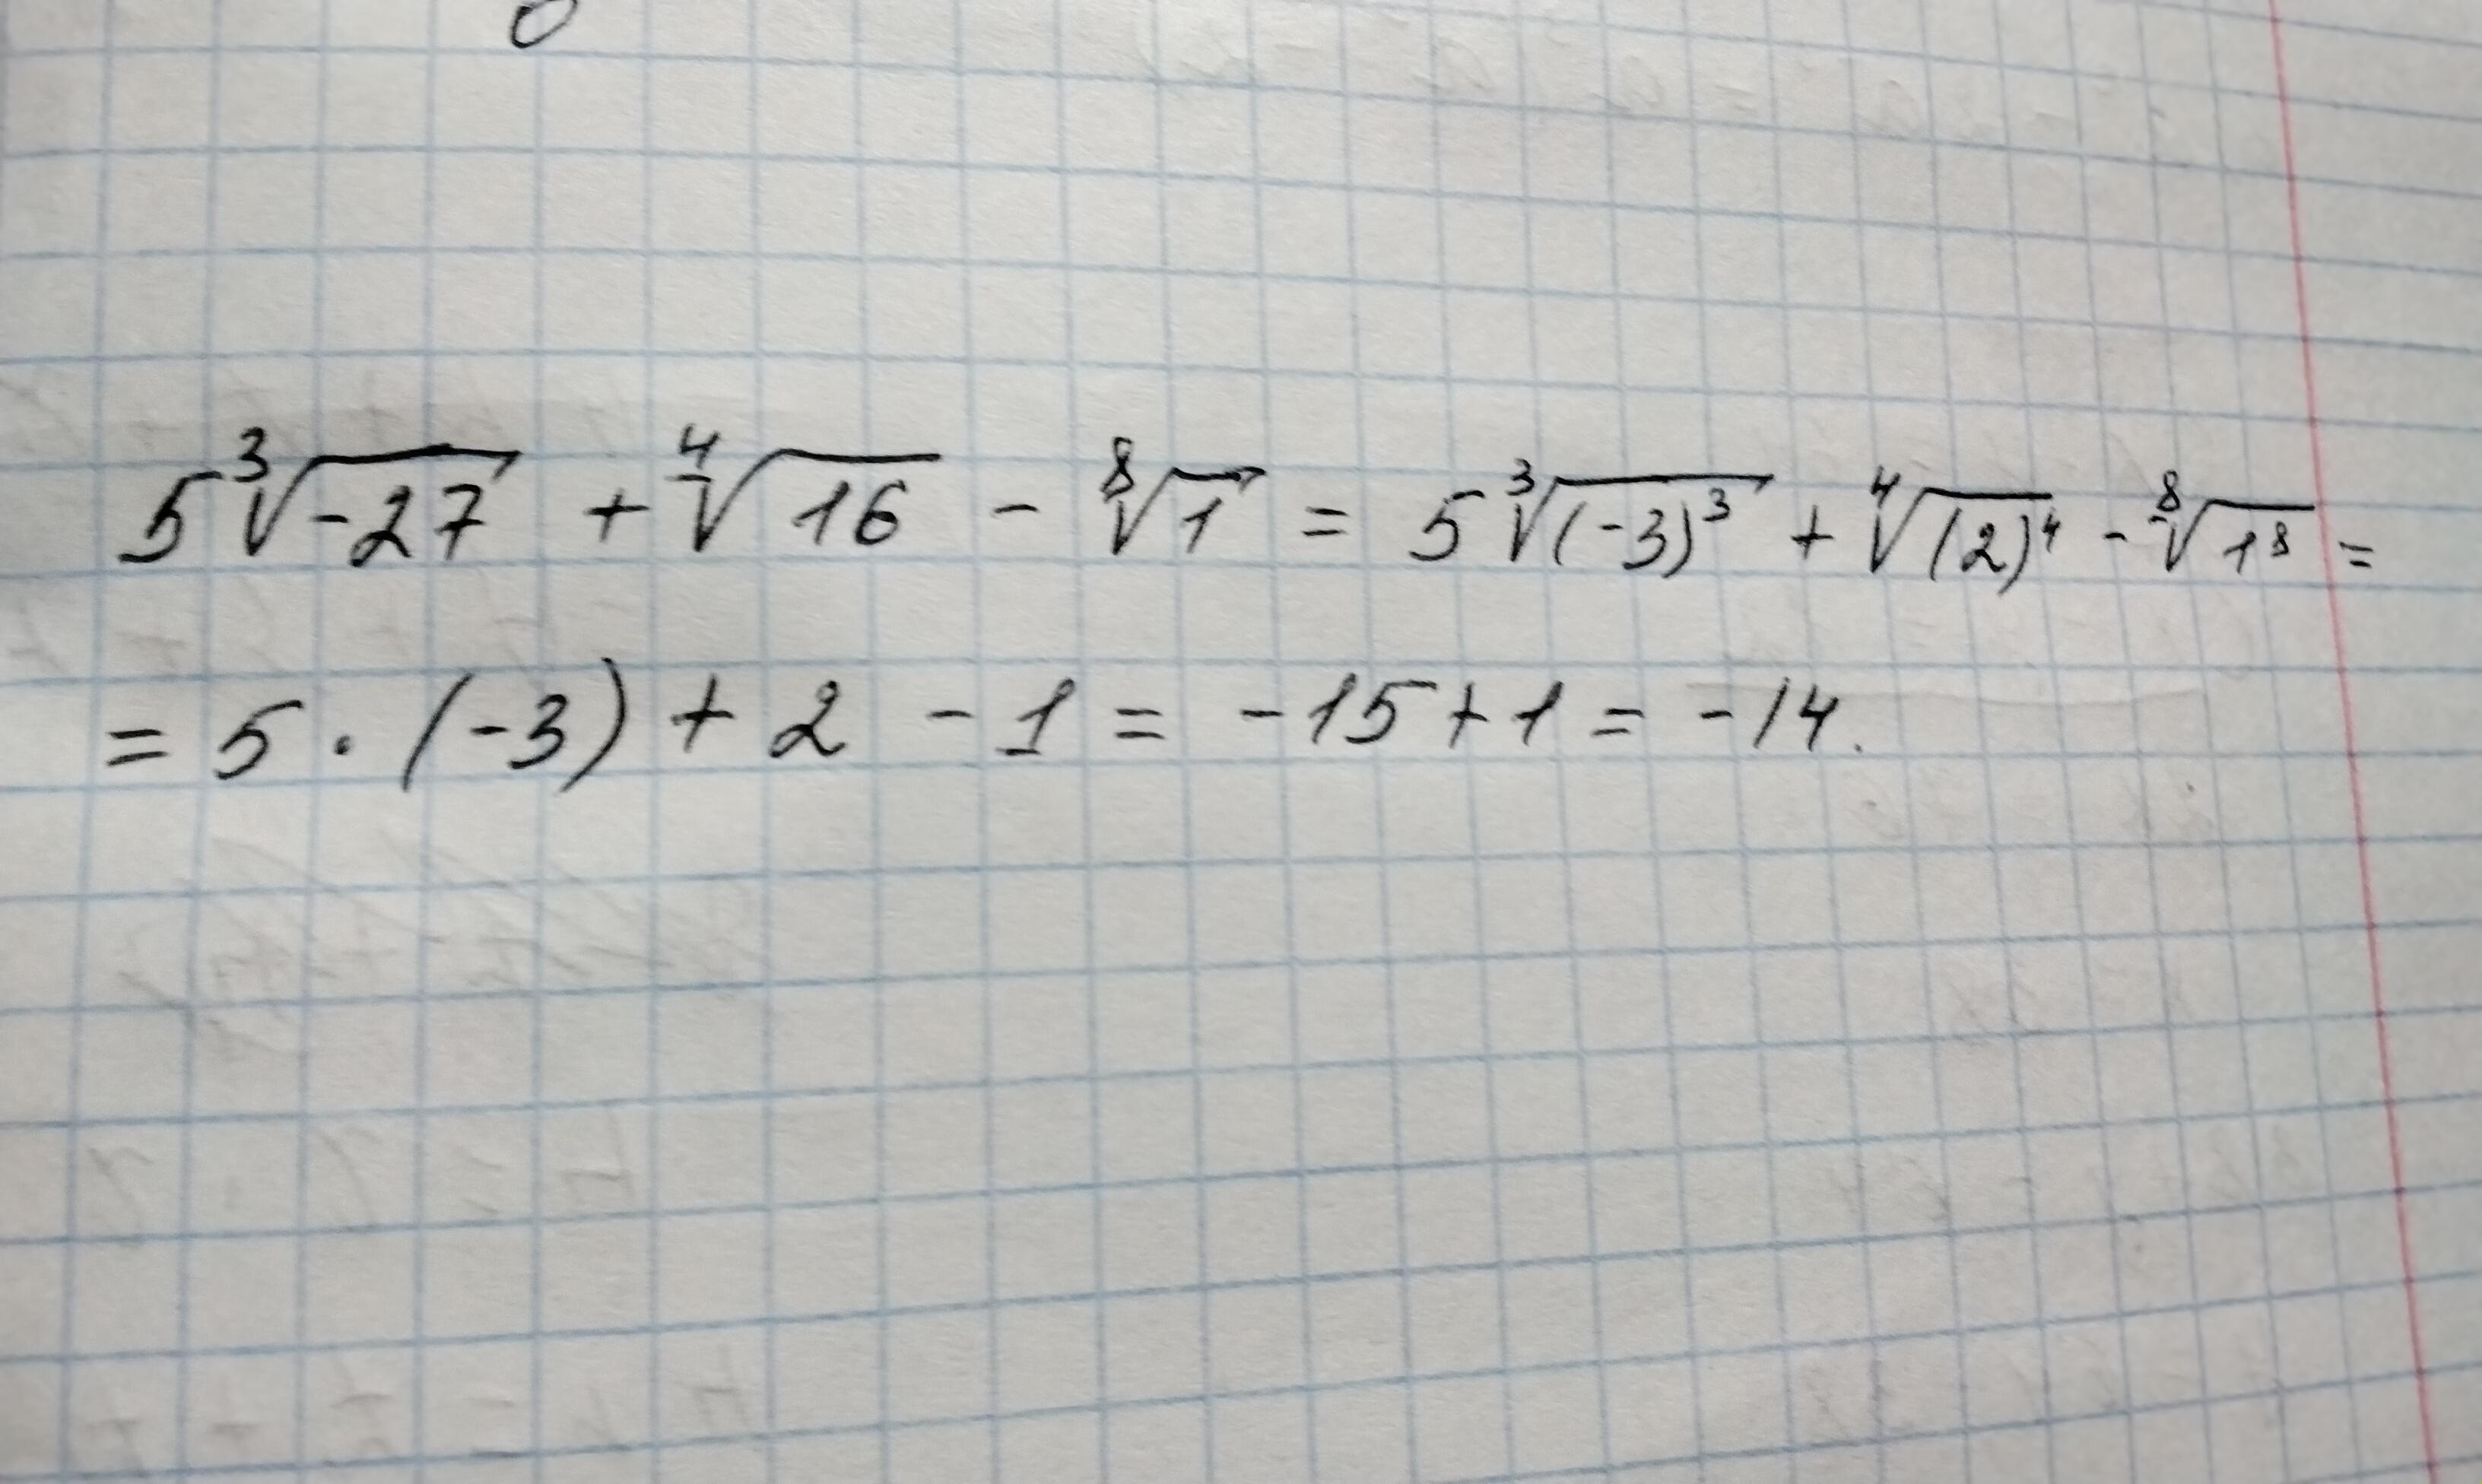 5∛-27 + ∜16 - ⁸√1 = 5∛(-3)³ + ∜(2)⁴ - ⁸√1⁸ =
= 5 · (-3) + 2 - 1 = -15 + 1 = -14.